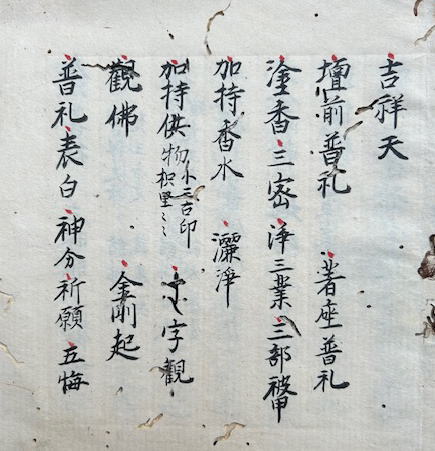 吉祥天
壇前普礼 著座普礼
塗香三密浄三業三部被甲
加持香水 灑浄
加持供物小三古印枳里〻〻 字觀
觀佛 金剛起
普礼表白神分祈願五悔